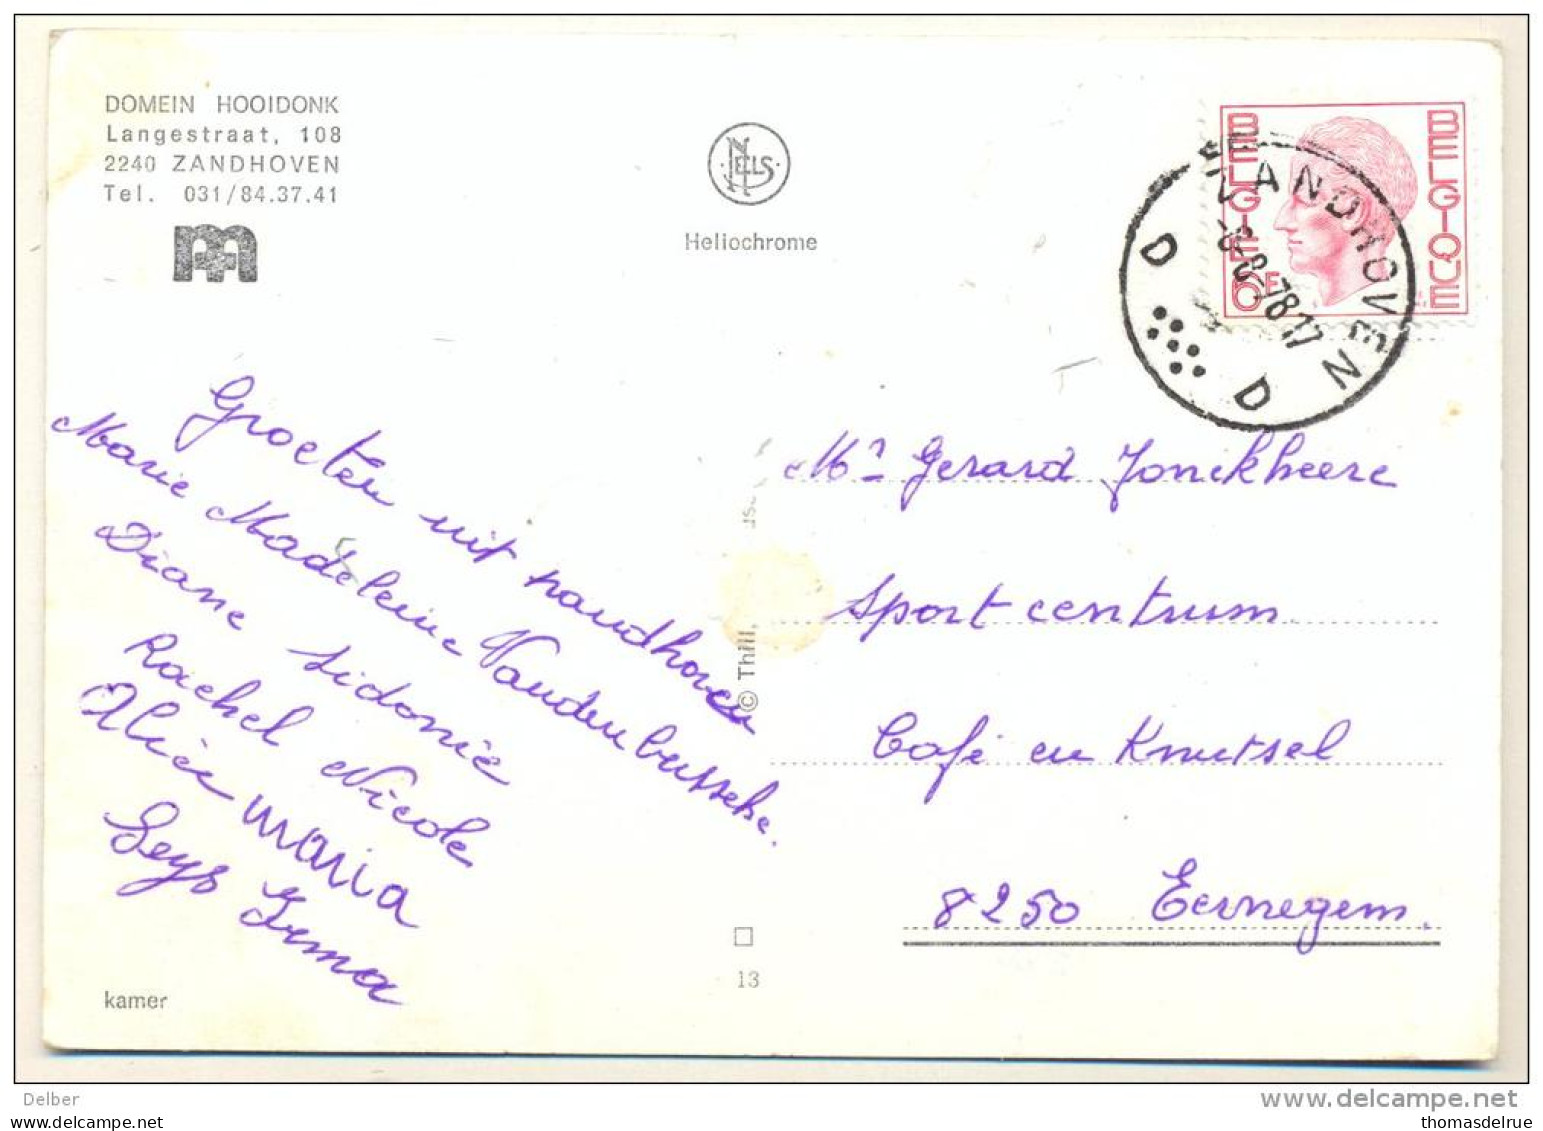 DOMEIN HOOIDONK
Langestraat, 108
2240 ZANDHOVEN
Tel. 031/84.37.41
NELS
Heliochrome
BELGIE
BELGIQUE
6F
ZANDHOVEN
-8-8-78 17
D D
Groeten uit handhoven
Marie Madeleine Vandenbussche.
Diane Sidonie
Rachel Nicole
Alice maria
Seys Irma
© Thill,
Mr Gerard Jonckheere
Sport centrum
Café en Knutsel
8250 Eernegem.
kamer
13
Delber
www.delcampe.net
https://www.delcampe.net
thomasdelrue